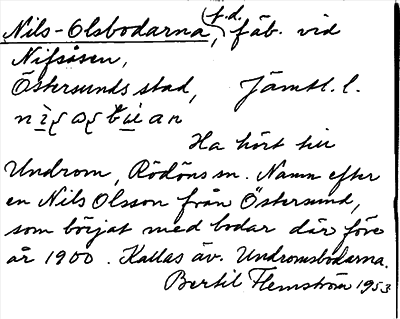 Nils-Olsbodarna, (f.d.) fäb. vid
Nifsåsen,
Östersunds stad, Jämtl. l.
Ha hört till
Undrom, Rödöns sn. Namn efter
en Nils Olsson från Östersund,
som börjat med bodar där före
år 1900. Kallas äv. Undromsbodarna.
Bertil Flemström 1953